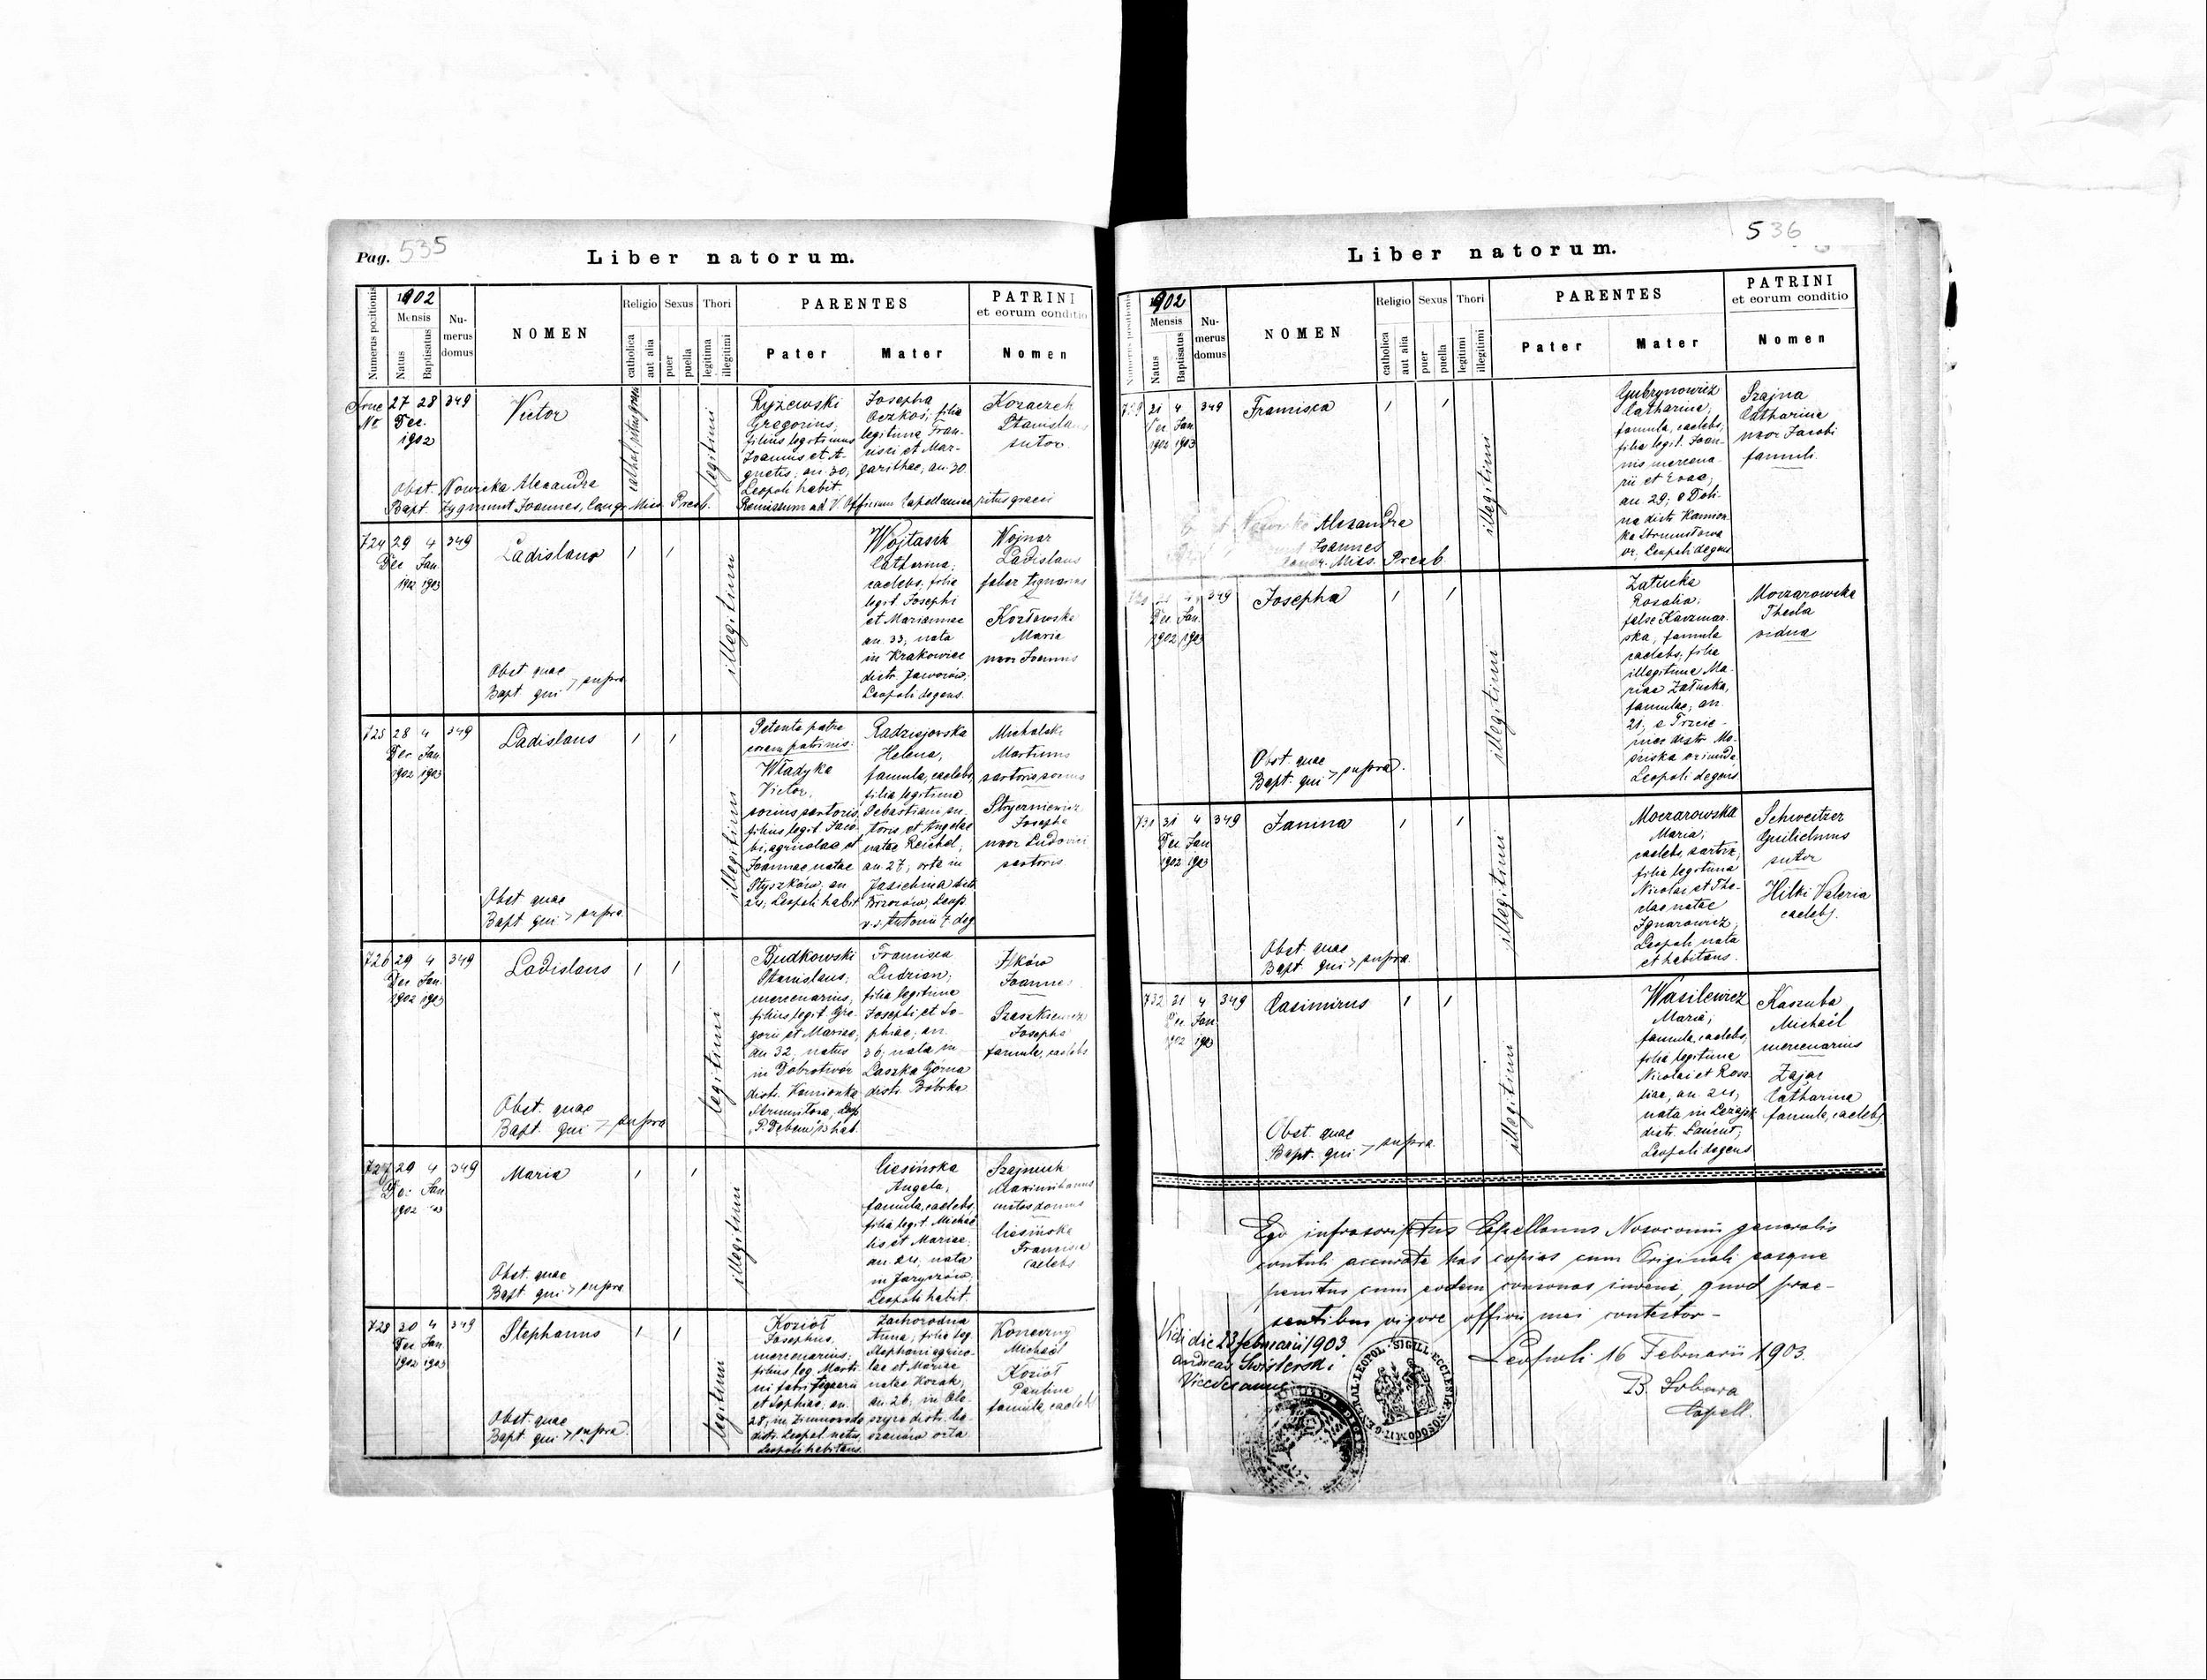 Pag. 535
Liber natorum.
Numerus positionis
1902
Mensis
Natus
Baptisatus
Nu-
merus
domus
NOMEN
Religio
catholica
aut alia
Sexus
puer
puella
Thori
legitima
illegitimi
PARENTES
Pater
Mater
PATRINI
et eorum conditio
Nomen
27 28 349
Dec.
1902
Victor
legitimi
Ryżewski
Gregorius,
filius legitimus
Joannis et A-
gnetis, an. 30,
Leopoli habit.
Josepha
Oczkoś, filia
legitima Fran-
cisci et Mar-
garithae, an. 30
Kozaczek
Stanislaus
sutor
Obst. Nowicka Alexandra
Bapt. Zygmunt Joannes, Congr. Miss. Presb.
Remissum ad V. Officium Capellaniae ritus graeci
724 29 4 349
Dec Jan.
1902 1903
Ladislaus
illegitimi
Wojtasik
Catharina,
caelebs, filia
legit. Josephi
et Mariannae
an. 33, nata
in Krakowiec
distr. Jaworów,
Leopoli degens.
Wojnar
Ladislaus
faber lignarius
Kozłowska
Maria
uxor Joannis
Obst. quae
Bapt. qui > supra
725 28 4 349
Dec Jan.
1902 1903
Ladislaus
illegitimi
Petente patre
coram patrinis:
Władyka
Victor,
socius sartoris,
filius legit. Jaco-
bi, agricolae et
Joannae natae
Styszków, an.
24, Leopoli habit
Radziejowska
Helena,
famula, caelebs,
filia legitima
Sebastiani su-
toris et Angelae
natae Reichel,
an. 27, orta in
Jasienica distr.
Brzozów, Leop.
v. s. Antonii 7 deg
Michalski
Martinus
sartoris socius
Josepha
uxor Ludovici
sartoris
Obst. quae
Bapt. qui > supra
726 29 4 349
Dec Jan.
1902 1903
Ladislaus
legitimi
Budkowski
Stanislaus,
mercenarius,
filius legit. Gre-
gorii et Mariae,
an. 32, natus
in Dobrotwór
distr. Kamionka
Strumiłowa, Leop.
Francisca
Dudzian,
filia legitima
Josephi et So-
phiae, an.
36, nata in
Laszka Górna
distr. Bóbrka
Joannes
Szaszkiewicz
Josepha
famula, caelebs
Obst. quae
Bapt. qui > supra
727 29 4 349
Dec. Jan.
1902
Maria
illegitimi
Ciesińska
Angela,
famula, caelebs,
filia legit. Michaë-
lis et Mariae,
an. 24, nata
in Jaryczów,
Leopoli habit.
Szajnuch
Maximilianus
custos domus
Ciesińska
Francisca
caelebs
Obst. quae
Bapt. qui > supra
728 30 4 349
Dec Jan.
1902 1903
Stephanus
legitimi
Kozioł
Josephus,
mercenarius,
filius leg. Marti-
ni fabri lignarii
et Sophiae, an.
28, in Zimnowoda
distr. Leopol. natus,
Leopoli habitans.
Zachorodna
Anna, filia leg.
Stephani agrico-
lae et Mariae
natae Kozak,
an. 26, in Ole-
szyce distr. Cie-
szanów orta
Konieczny
Michaël
Kozioł
Paulina
famula, caelebs
Obst. quae
Bapt. qui > supra
536
Liber natorum.
Numerus positionis
1902
Mensis
Natus
Baptisatus
Nu-
merus
domus
NOMEN
Religio
catholica
aut alia
Sexus
puer
puella
Thori
legitimi
illegitimi
PARENTES
Pater
Mater
PATRINI
et eorum conditio
Nomen
729 21 4 349
Dec Jan.
1902 1903
Francisca
illegitimi
Gubrynowicz
Catharina,
famula, caelebs,
filia legit. Joan-
nis mercena-
rii et Evae,
an. 29, e Doli-
na distr. Kamion-
ka Strumiłowa
or. Leopoli degens
Szajna
Catharina
uxor Jacobi
famuli
Alexandra
Joannes
Congr. Miss. Presb.
349
Dec Jan.
1902 1903
Josepha
illegitimi
Załucka
Rosalia,
false Kaczmar-
ska, famula
caelebs, filia
illegitima Ma-
riae Załucka,
famulae, an.
21, e Trzcie-
niec distr. Mo-
ściska oriunda,
Leopoli degens
Moczarowska
Thecla
vidua
Obst. quae
Bapt. qui > supra.
731 31 4 349
Dec Jan
1902 1903
Janina
illegitimi
Moczarowska
Maria,
caelebs, sartrix,
filia legitima
Nicolai et The-
clae natae
Ignarowicz,
Leopoli nata
et habitans.
Schweitzer
Guilielmus
sutor
Hilki Valeria
caelebs.
Obst. quae
Bapt. qui > supra.
732 21 4 349
Dec Jan.
1902 1903
Casimirus
illegitimi
Wasilewicz
Maria,
famula, caelebs,
filia legitima
Nicolai et Rosa-
liae, an. 24,
nata in Leżajsk
distr. Łańcut,
Leopoli degens
Kaszuba
Michaël
mercenarius
Zając
Catharina
famula, caelebs
Obst. quae
Bapt. qui > supra.
Ego infrascriptus Capellanus Nosocomii generalis
contuli accurate has copias cum Originali easque
penitus cum eodem consonas inveni, quod prae-
sentibus vigore officii mei contestor-
Leopoli 16 Februarii 1903.
B. Sobera
Capell.
Vidi die 23 februarii 1903.
Andreas Swisterski
Vicedecanus
SIGILL. ECCLESIAE NOSOCOMII GENERAL. LEOPOL.